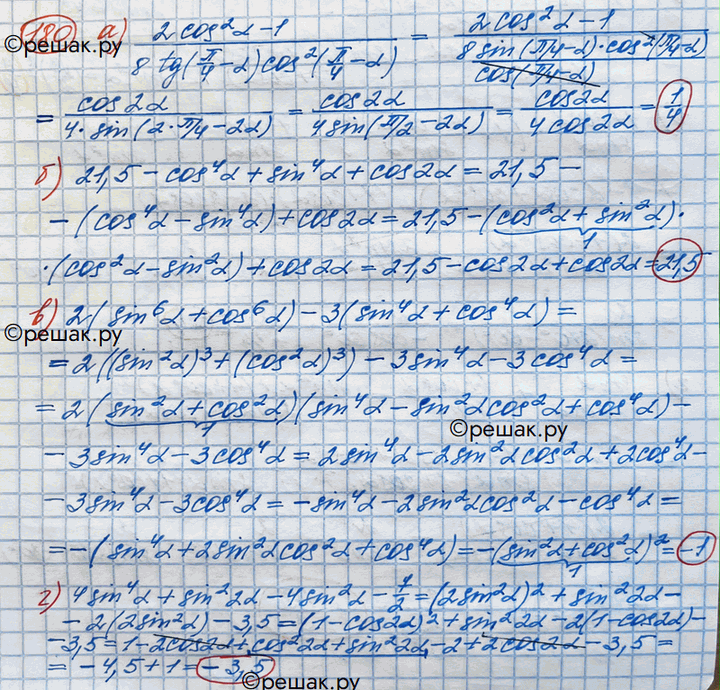 180 а) (2cos²α-1)/(8tg(π/4-α)cos²(π/4-α)) = (2cos²α-1)/(8sin(π/4-α)·cos²(π/4-α)/cos(π/4-α))
©решак.ру
= cos2α/(4·sin(2·π/4-2α)) = cos2α/(4sin(π/2-2α)) = cos2α/(4cos2α) = 1/4
б) 21,5-cos⁴α+sin⁴α+cos2α=21,5-
-(cos⁴α-sin⁴α)+cos2α=21,5-(cos²α+sin²α)·
1
·(cos²α-sin²α)+cos2α=21,5-cos2α+cos2α=21,5
в) 2(sin⁶α+cos⁶α)-3(sin⁴α+cos⁴α)=
©решак.ру
=2((sin²α)³+(cos²α)³)-3sin⁴α-3cos⁴α=
=2(sin²α+cos²α)(sin⁴α-sin²αcos²α+cos⁴α)-
1
©решак.ру
-3sin⁴α-3cos⁴α=2sin⁴α-2sin²αcos²α+2cos⁴α-
-3sin⁴α-3cos⁴α=-sin⁴α-2sin²αcos²α-cos⁴α=
=-(sin⁴α+2sin²αcos²α+cos⁴α)=-(sin²α+cos²α)²=-1
1
г) 4sin⁴α+sin²2α-4sin²α-7/2=(2sin²α)²+sin²2α-
-2(2sin²α)-3,5=(1-cos2α)²+sin²2α-2(1-cos2α)-
-3,5=1-2cos2α+cos²2α+sin²2α-2+2cos2α-3,5=
=-4,5+1=-3,5
©решак.ру